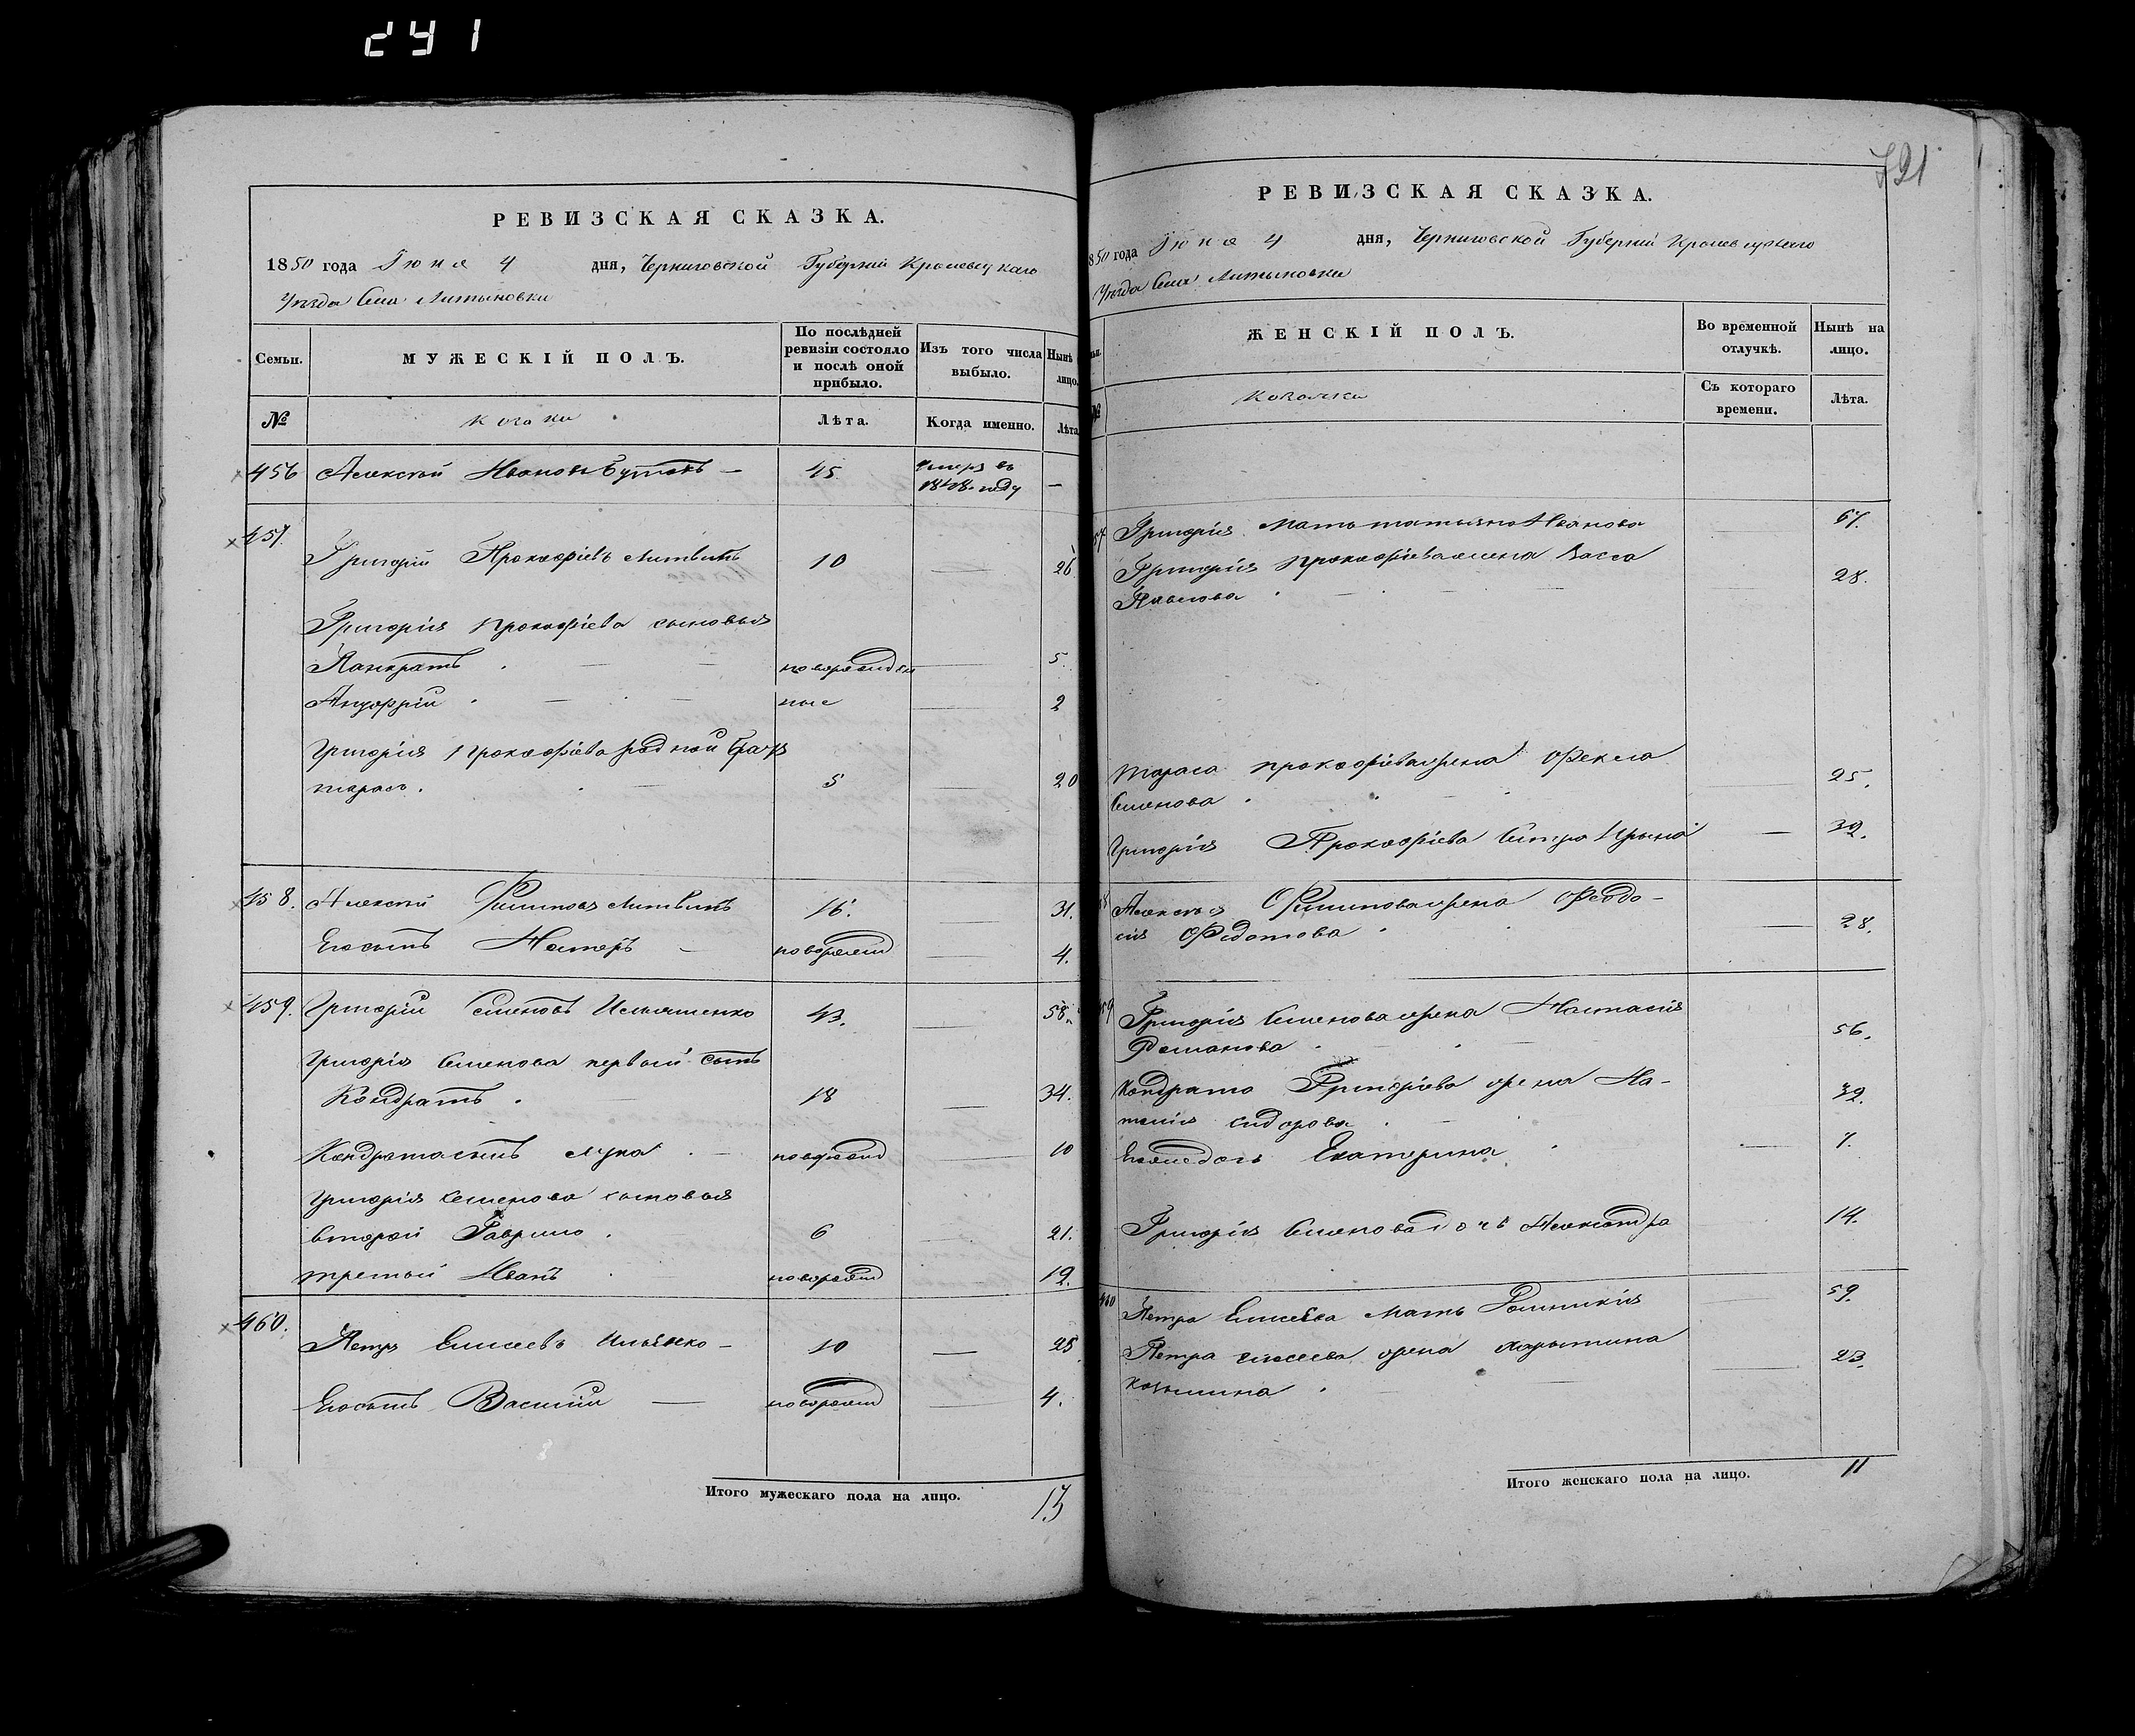 241
721
РЕВИЗСКАЯ СКАЗКА.
1850 года Іюня 4 дня, Черниговской Губерніи Кролевецкаго
Уѣзда Села Литвиновки
Семьи.
МУЖЕСКІЙ ПОЛЪ.
По послѣдней ревизіи состояло и послѣ оной прибыло.
Изъ того числа выбыло.
Нынѣ
лицо.
№
Козаки
Лѣта.
Когда именно.
Лѣта
456 Алексѣй Ивановъ — 45 умеръ въ 1848 году —
457. Григорій Прокофіевъ Литвинъ 10 — 26
Григорія Прокофіева сыновья
Панкратъ . — — новорожден — 5.
Ануфрій . — . — ные — 2
Григорія Прокофіева родной братъ
Тарасъ . . — 5 — 20
458. Алексѣй Филиповъ Литвинъ 16. — 31.
Его сынъ Несторъ — новорожд — 4.
459. Григорій Семеновъ Ильяшенко 43. — 58.
Григорія Семенова первый сынъ
Кондратъ . — 18 — 34.
Кондрата сынъ Лука . — новорожд — 10
Григорія Семенова сыновья
второй Гаврило . — 6 — 21.
третій Иванъ . — новорожд — 12.
460. Петръ Елисеевъ — 10 — 25.
Его сынъ Василій — новорожд — 4.
Итого мужескаго пола на лицо. 13
РЕВИЗСКАЯ СКАЗКА.
850 года Іюня 4 дня, Черниговской Губерніи Кролевецкаго
Уѣзда Села Литвиновки
ЖЕНСКІЙ ПОЛЪ.
Во временной отлучкѣ.
Нынѣ на лицо.
№
Козачки
Съ котораго времени.
Лѣта.
57 Григорія мать Татьяна Иванова — 67.
Григорія Прокофіева жена Васса
Павлова . — . — . — — 28.
Тараса Прокофіева жена Фекла
Семенова . . — . — 25.
Григорія Прокофіева сестра Ирына — 32.
58 Алексѣя Филипова жена Феодо-
сія Федотова . . — 28.
59 Григорія Семенова жена Настасія
Романова . — . — 56.
Кондрата Григорьева жена На-
талія Сидорова . — 32.
Его дочь Екатерина . — 7.
Григорія Семенова дочь Александра 14.
460 Петра Елисеева мать — 59.
Петра Елисеева жена Харытина
Козьмина . — . — — 23.
Итого женскаго пола на лицо. 11